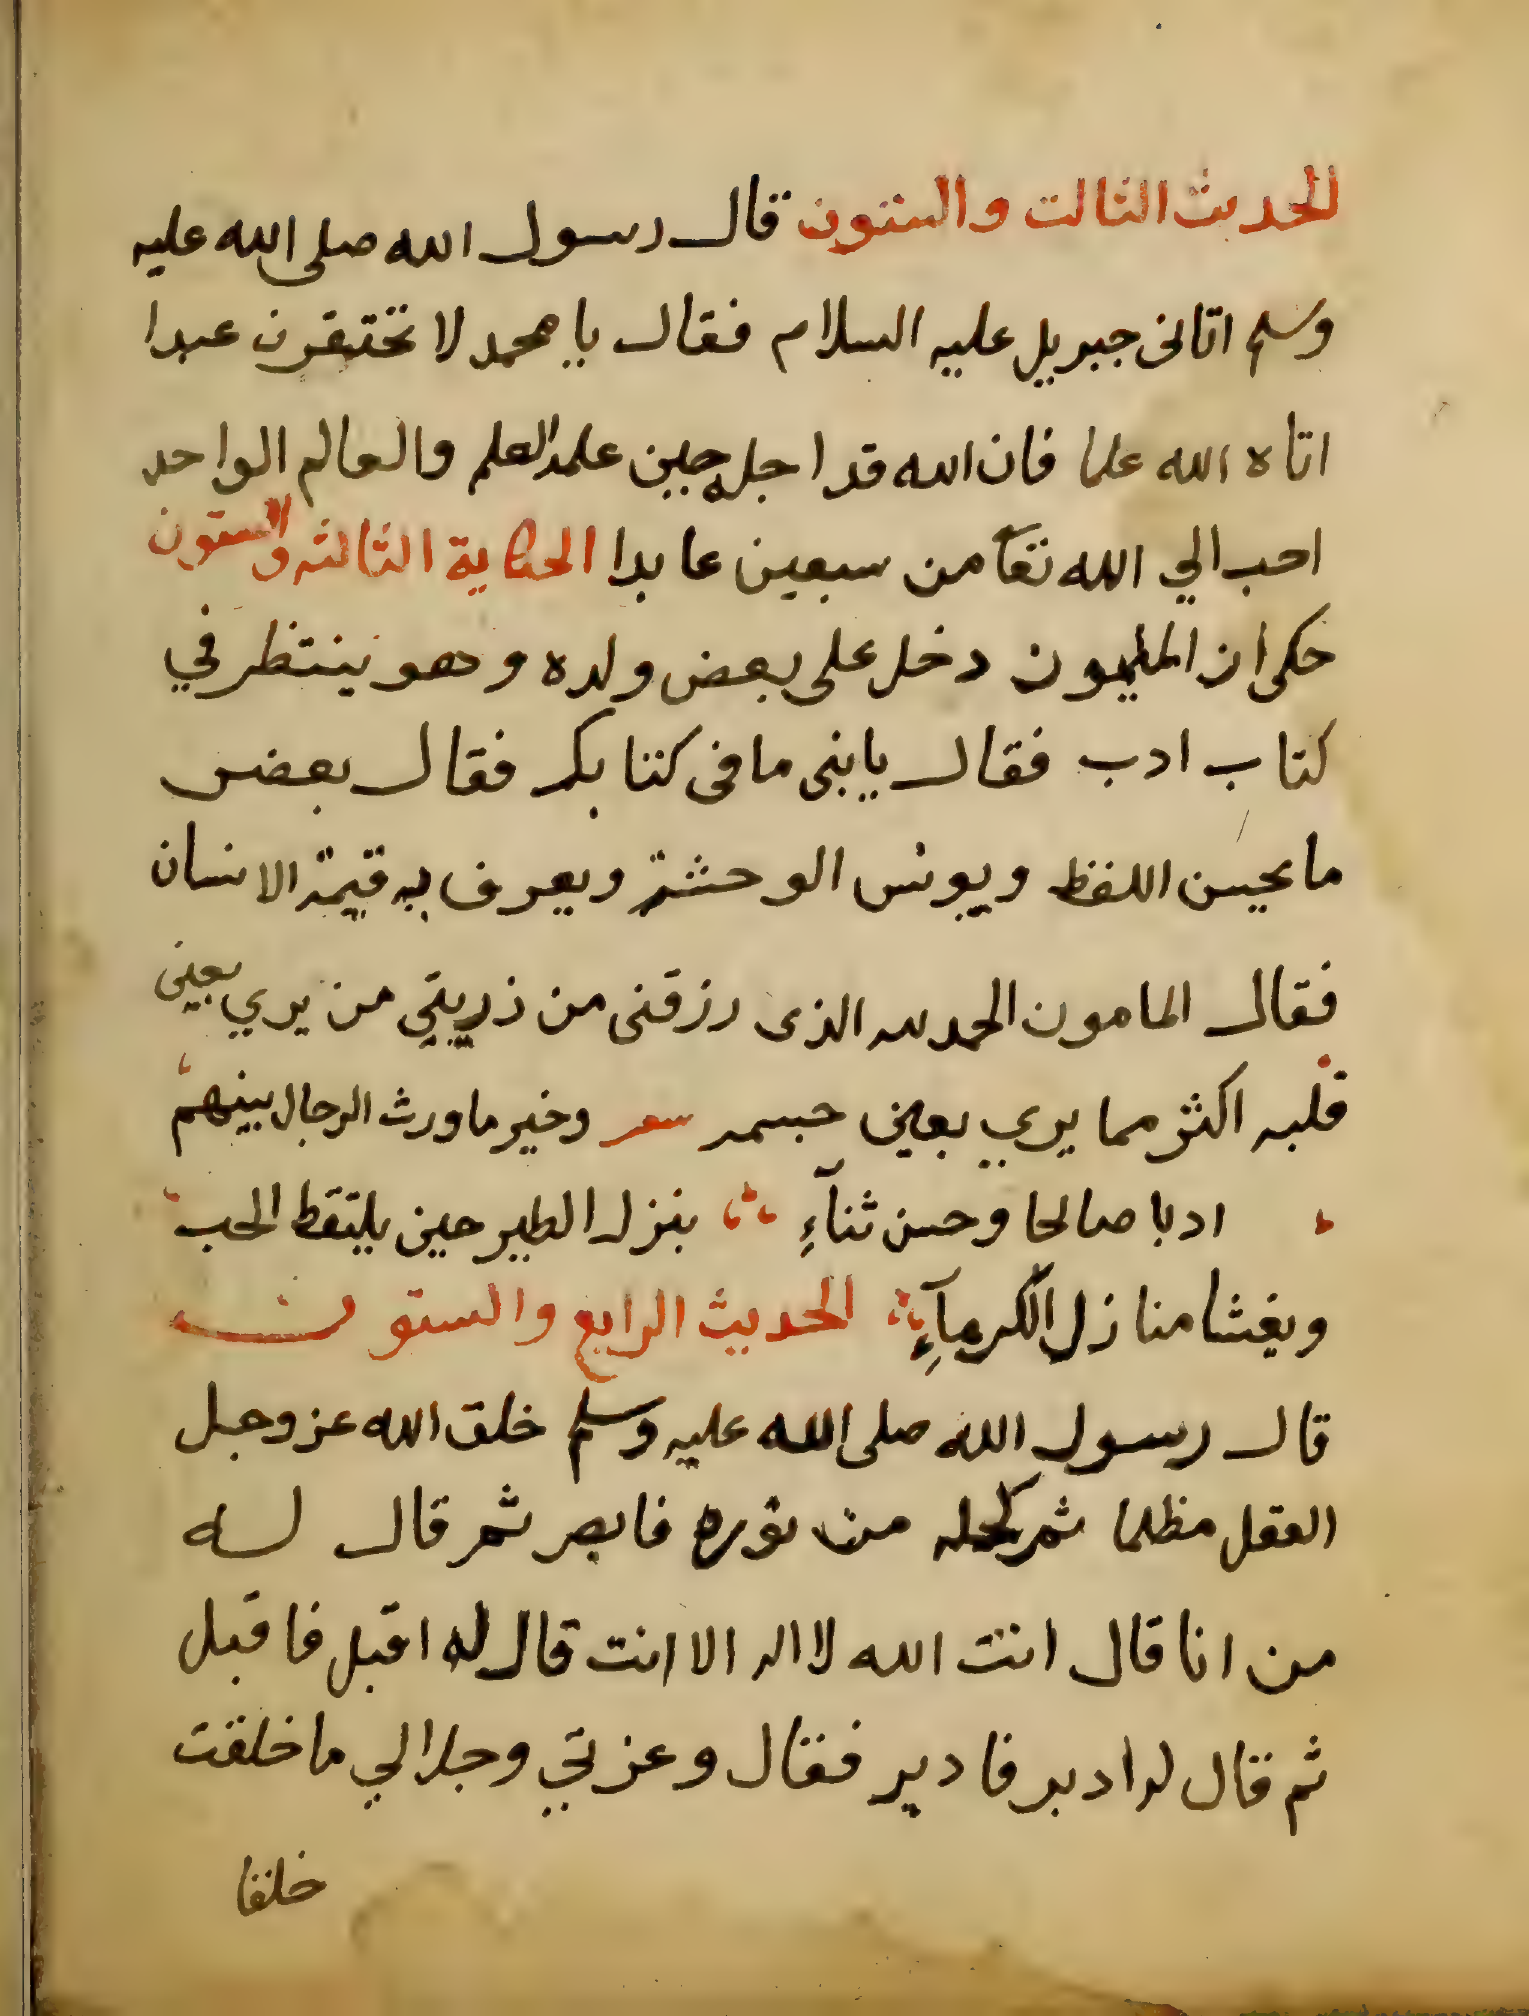 الحديث الثالث والستون قال رسول الله صلى الله عليه
وسلم اتانى جبريل عليه السلام فقال يا محمد لا تحتقرن عبدا
اتاه الله علما فان الله قد اجله حين علمه العلم والعالم الواحد
احب الي الله تعآ من سبعين عابدا الحكاية الثالثه والستون
حكى ان المليمون دخل على بعض ولده وهو ينتظر في
كتاب ادب فقال يا بنى ما فى كتابك فقال بعض
ما يحسن اللفظ ويونس الوحشة ويعرف به قيمة الانسان
فقال المامون الحمد لله الذى رزقنى من ذريتي من يري بعينى
قلبه اكثر مما يري بعين جسمه شعر وخير ما ورث الرجال بينهم
ادبا صالحا وحسن ثنآءِ ينزل الطير حين يلتقط الحب
ويغشا منازل الكرمآءِ الحديث الرابع والستون
قال رسول الله صلى الله عليه وسلم خلق الله عز وجل
العقل مظلما ثم كحله من نوره فابصر ثم قال له
من انا قال انت الله لا اله الا انت قال له اقبل فاقبل
ثم قال له ادبر فادبر فقال وعزتي وجلالي ما خلقت
خلقا